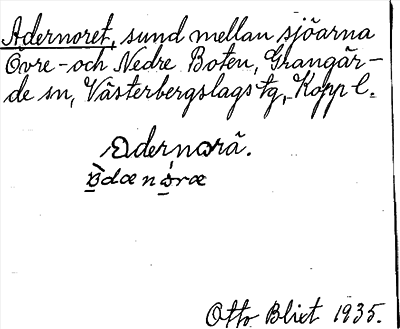 Adernoret, sund mellan sjöarna
Övre- och Nedre Boten, Grangär-
de sn, Västerbergslags tg, Kopp l.
Adernorä.
Otto Blixt 1935.